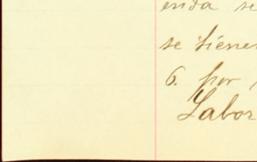 enda se
se tiene
6. por
Labor